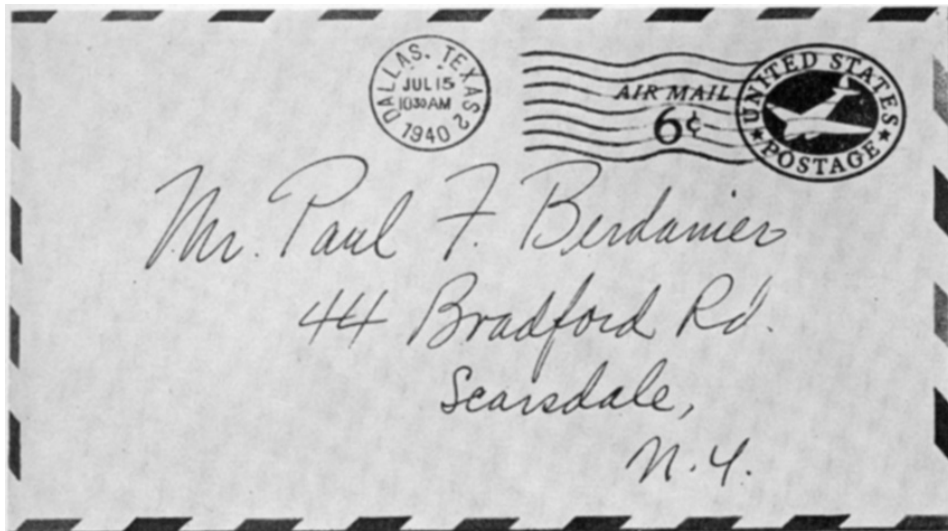 DALLAS, TEXAS 2
JUL 15
10 30 AM
1940
AIR MAIL
6¢
UNITED STATES
POSTAGE
Mr. Paul F. Berdanier
44 Bradford Rd.
Scarsdale,
N.Y.